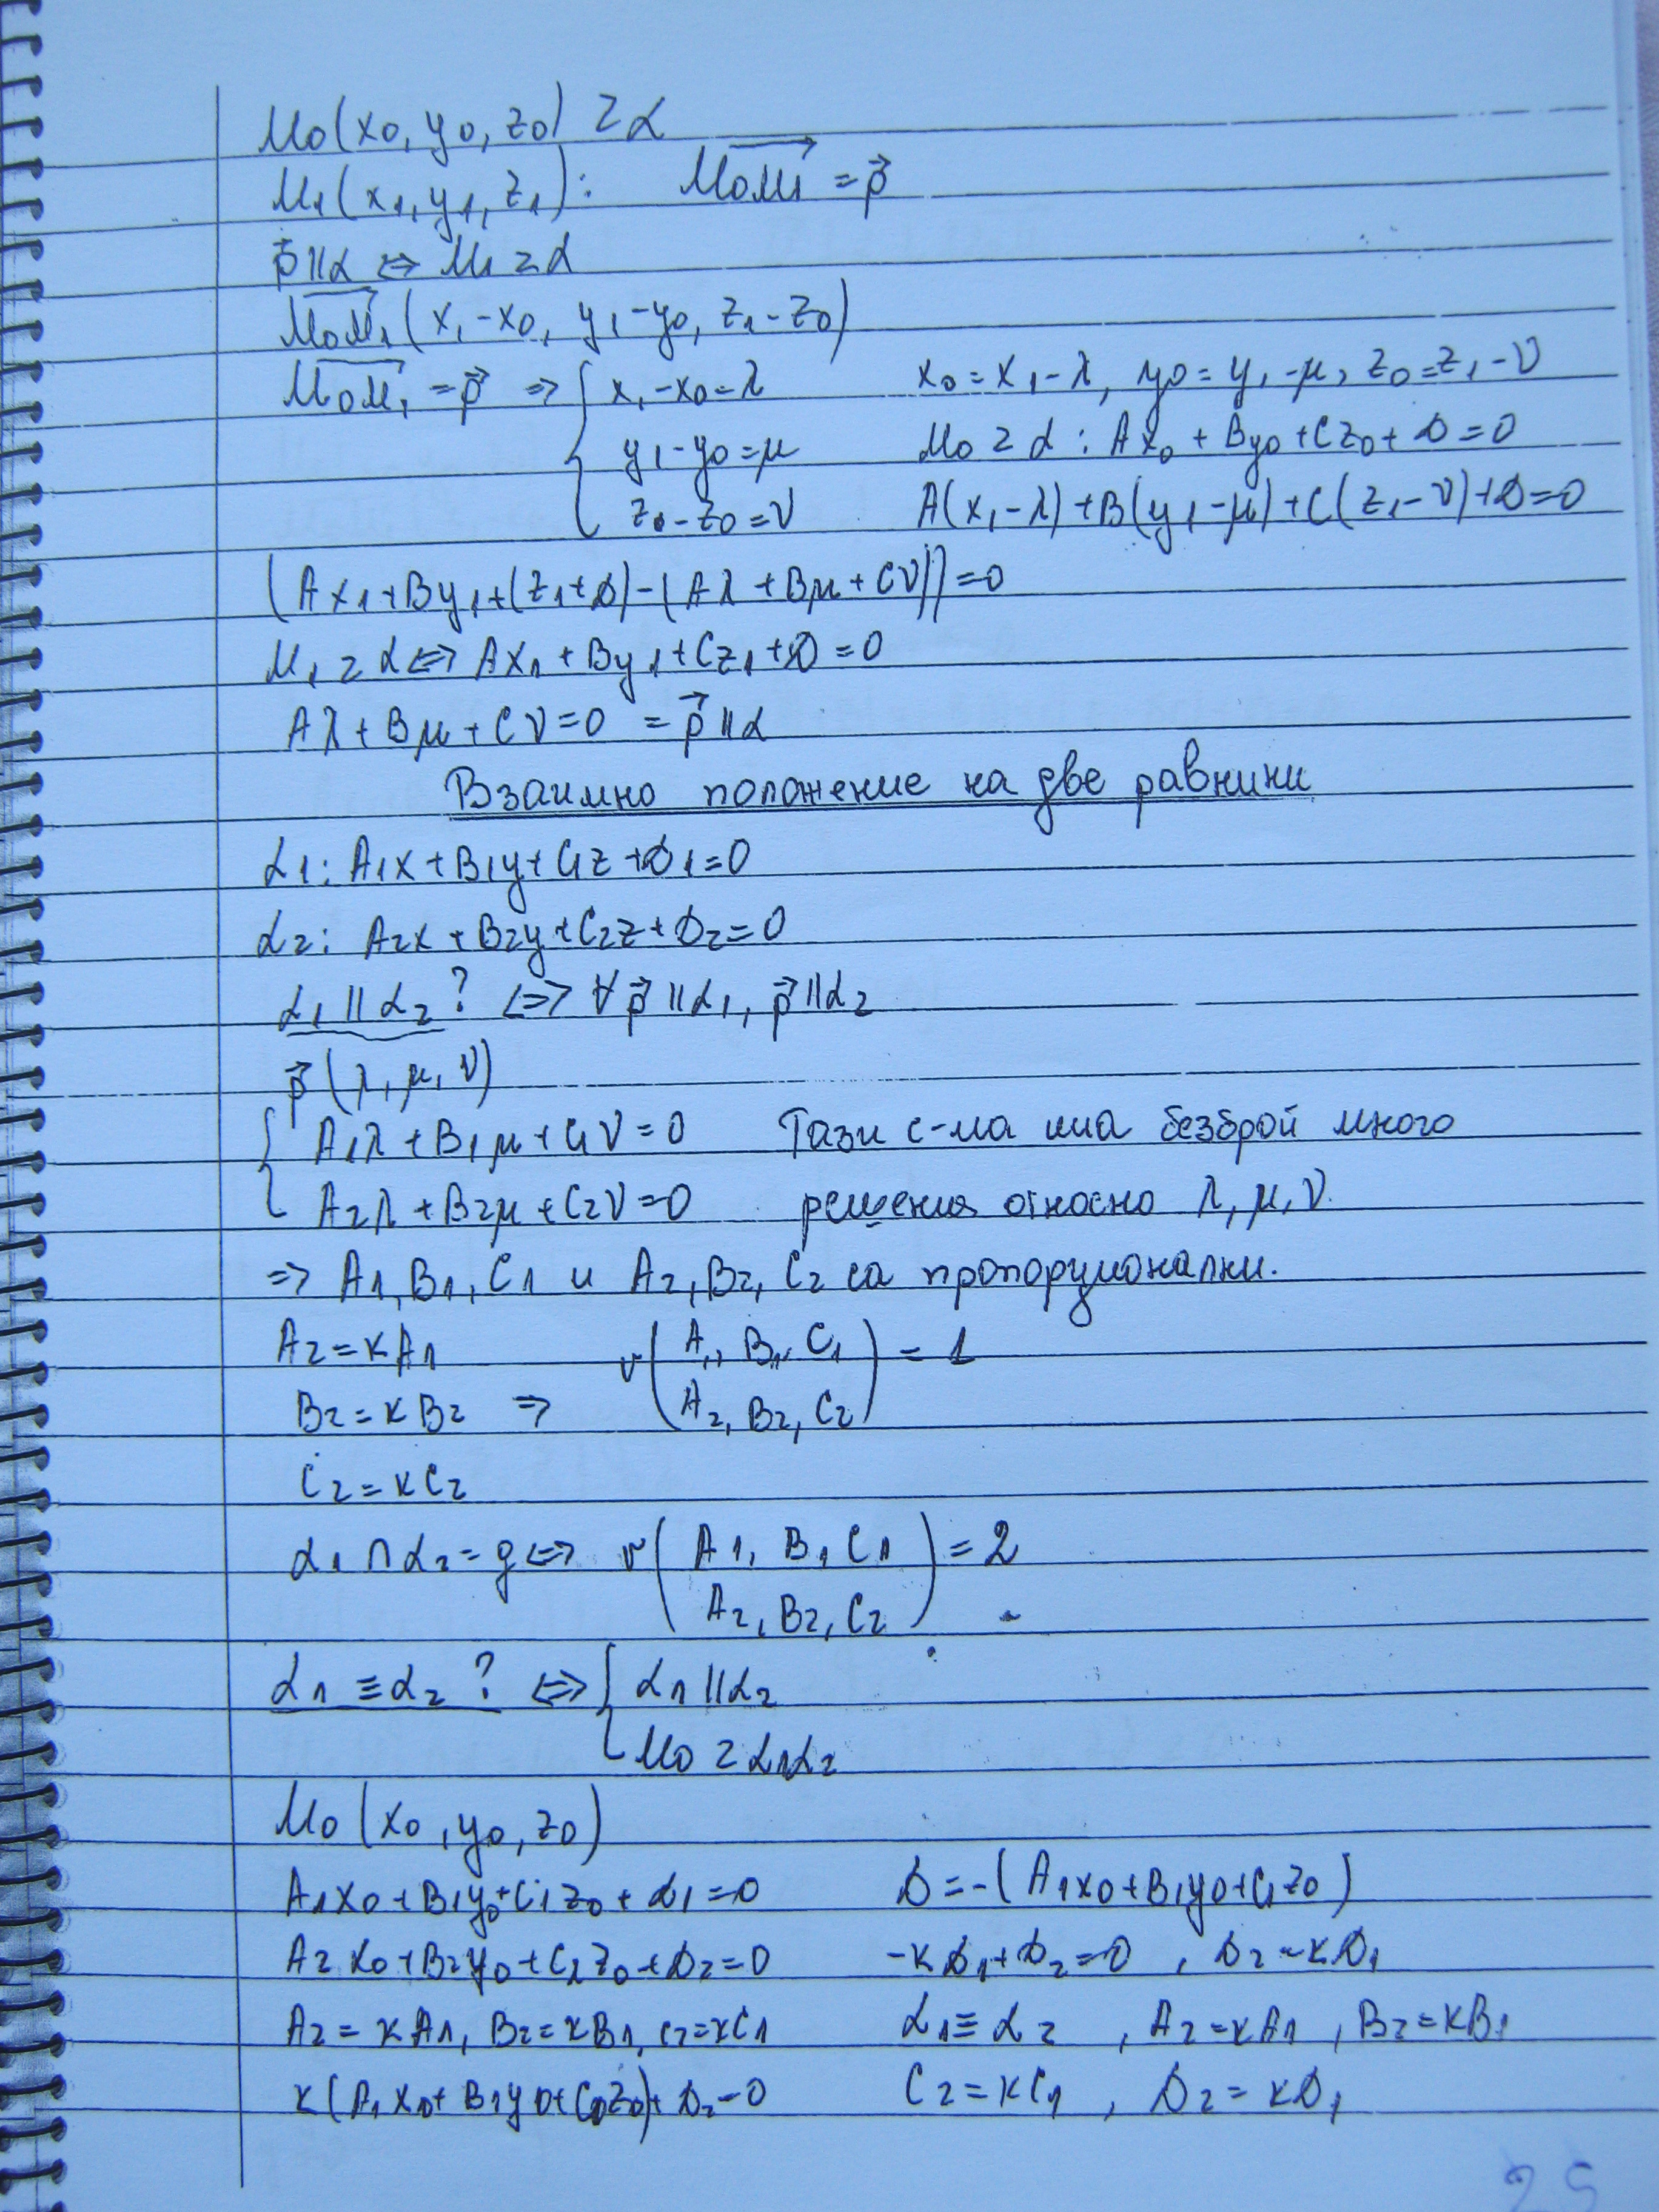 M0(x0, y0, z0) z α
M1(x1, y1, z1): M0M1 = p⃗
p⃗ || α ⇔ M1 z α
M0M1(x1-x0, y1-y0, z1-z0)
M0M1 = p⃗ ⇒ { x1-x0=λ x0=x1-λ, y0=y1-μ, z0=z1-ν
y1-y0=μ M0 z α: Ax0+By0+Cz0+D=0
z1-z0=ν A(x1-λ)+B(y1-μ)+C(z1-ν)+D=0
(Ax1+By1+(z1+D)-(Aλ+Bμ+Cν))=0
M1 z α ⇔ Ax1+By1+Cz1+D=0
Aλ+Bμ+Cν=0 = p⃗ || α
Взаимно положение на две равнини
α1: A1x+B1y+C1z+D1=0
α2: A2x+B2y+C2z+D2=0
α1 || α2 ? ⇔ ∀ p⃗ || α1, p⃗ || α2
p⃗(λ, μ, ν)
{ A1λ+B1μ+C1ν=0 Тази с-ма има безброй много
A2λ+B2μ+C2ν=0 решения относно λ, μ, ν.
⇒ A1, B1, C1 и A2, B2, C2 са пропорционални.
A2=кA1 r( A1, B1, C1 ) = 1
B2=кB2 ⇒ ( A2, B2, C2 )
C2=кC2
α1 ∩ α2 = g ⇔ r( A1, B1 C1 ) = 2
( A2, B2, C2 )
α1 ≡ α2 ? ⇔ { α1 || α2
M0 z α1α2
M0(x0, y0, z0)
A1x0+B1y0+C1z0+α1=0 D=-(A1x0+B1y0+C1z0)
A2x0+B2y0+C2z0+D2=0 -кD1+D2=0, D2=кD1
A2=кA1, B2=кB1, C2=кC1 α1≡α2, A2=кA1, B2=кB1
к(A1x0+B1y0+C1z0)+D2=0 C2=кC1, D2=кD1
25